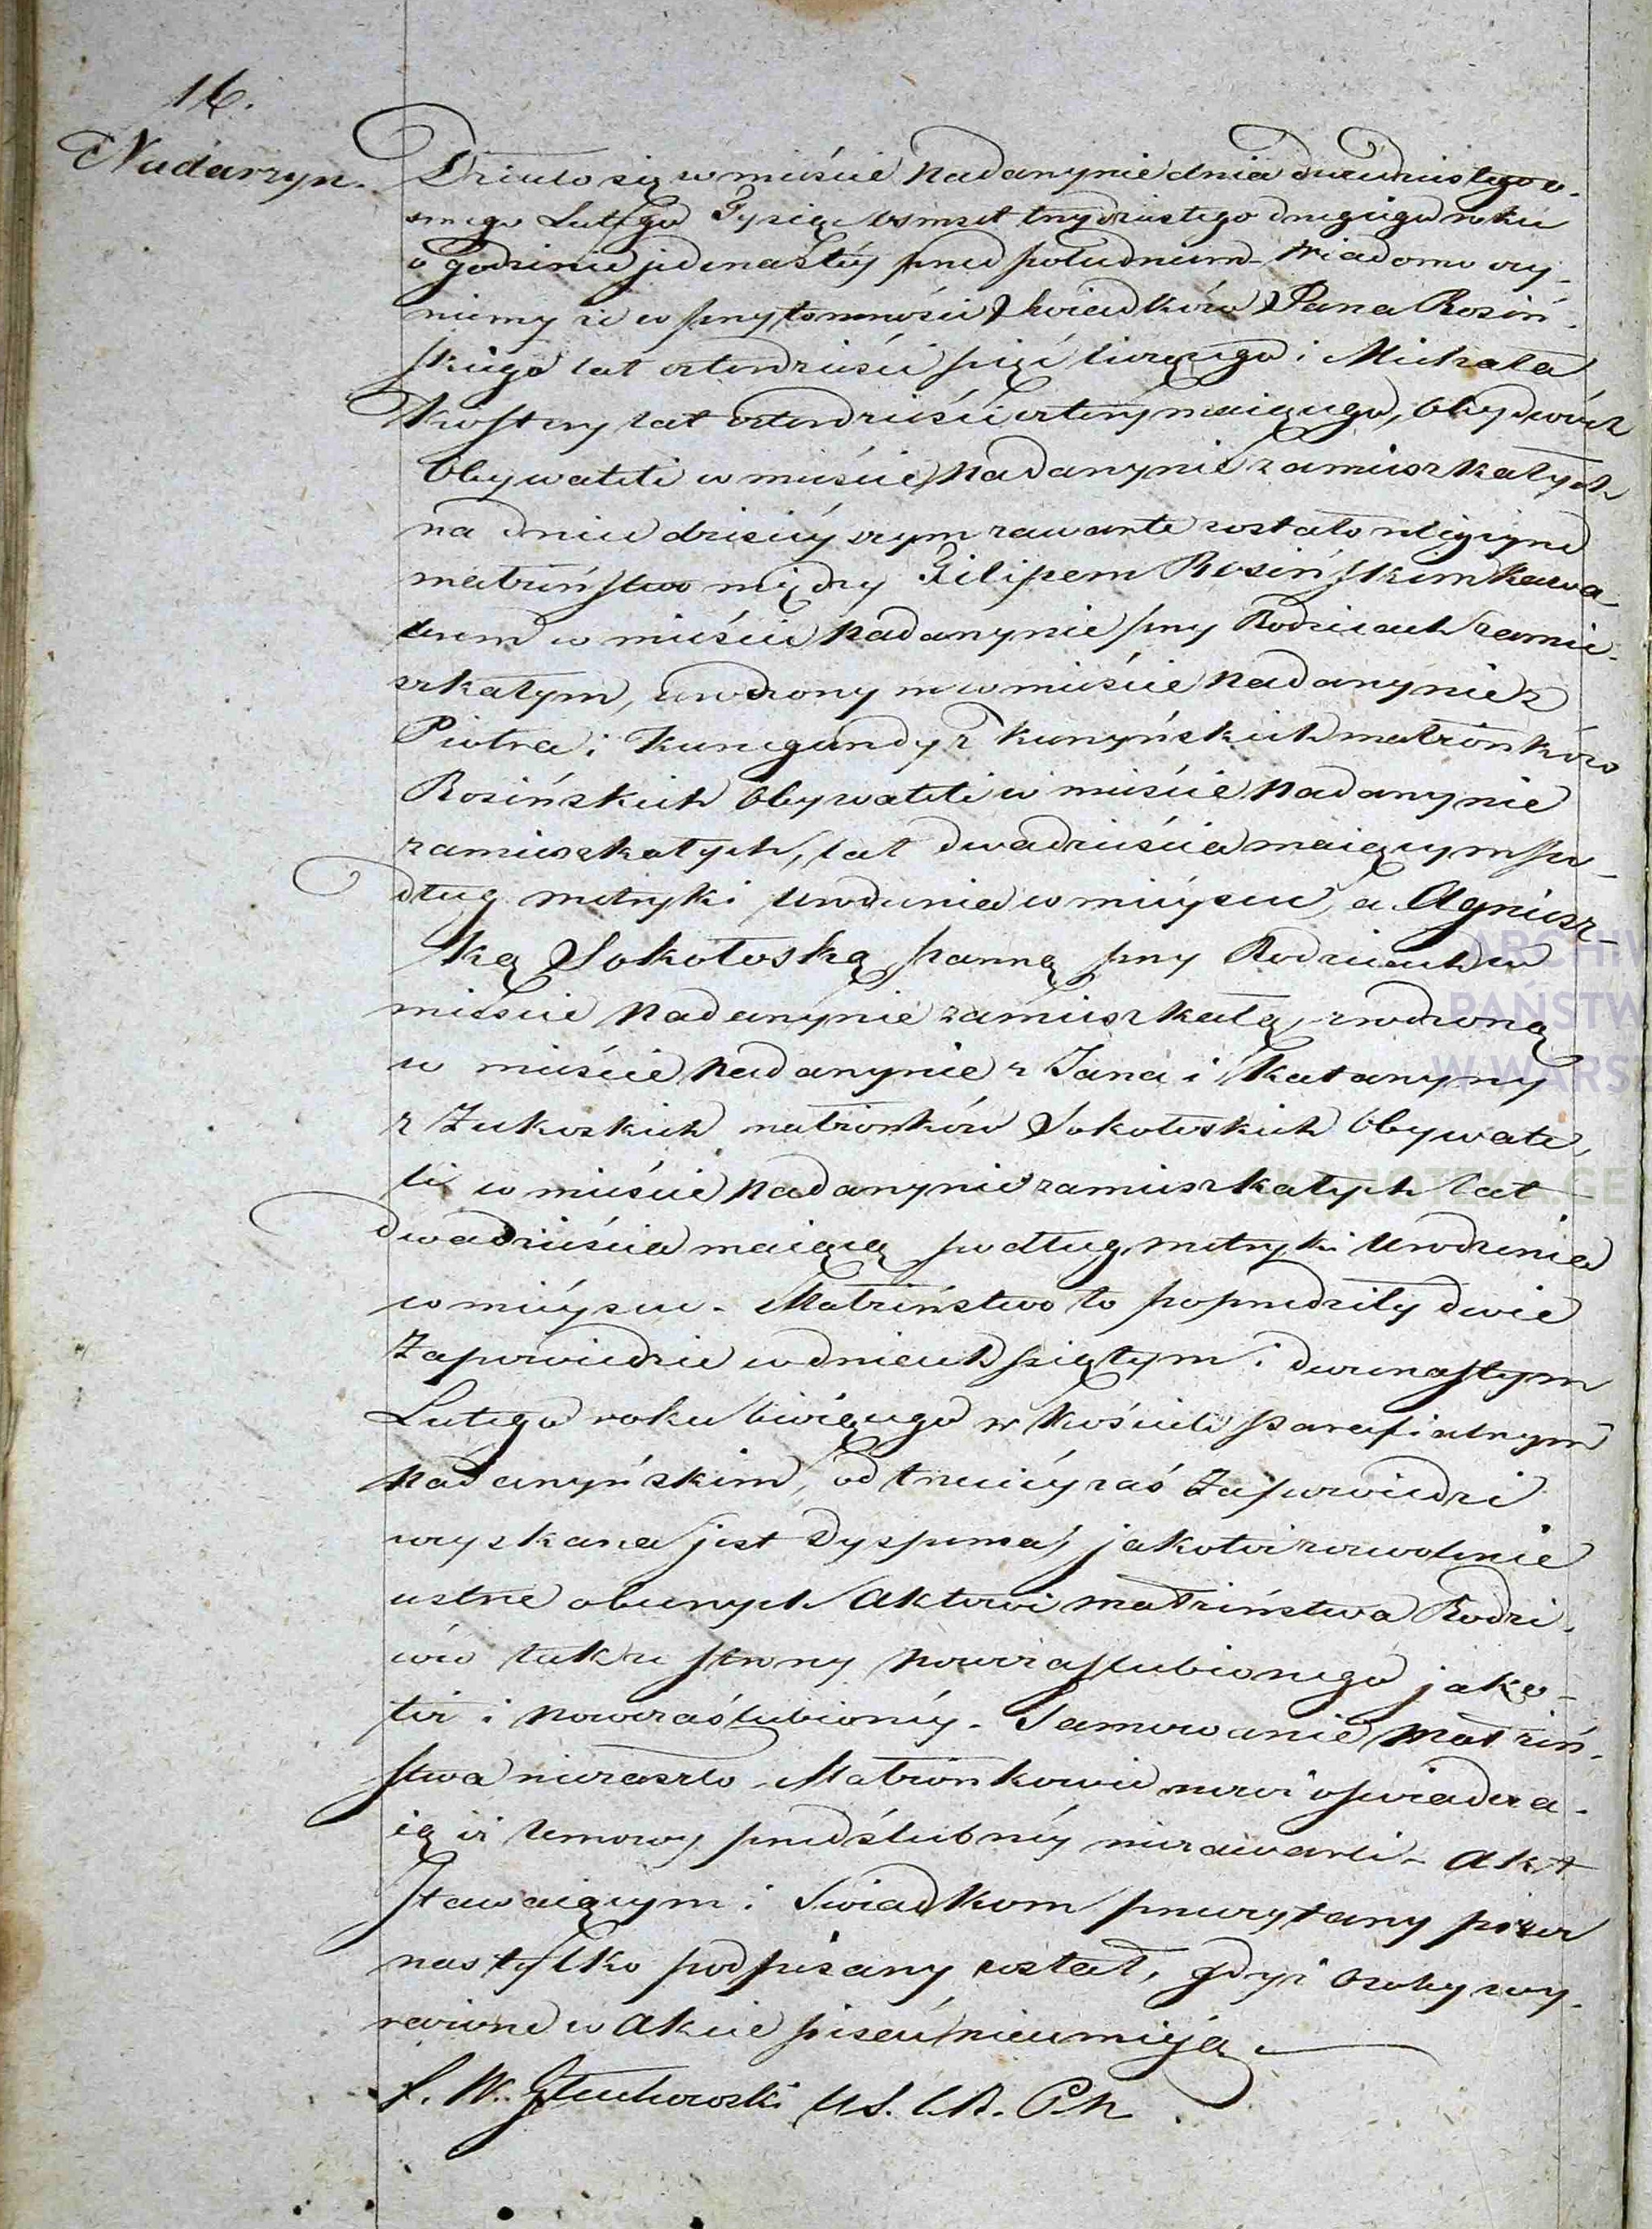 16.
Nadarzyn.
Działo się w mieście Nadarzynie dnia dwudziestego o-
smego Lutego Tysiąc osmset trzydziestego drugiego roku
o godzinie jedenastéy przed południem - Wiadomo czy-
niemy że w przytomności Swiadków Jana Rosiń-
skiego lat czterdzieści pięć liczącego i Michała
Kostery lat czterdzieści cztery maiącego, Obydwóch
Obywateli w mieście Nadarzynie zamieszkałych
na dniu dzisieyszym zawarte zostało religijne
małżeństwo między Filipem Rosińskim kawa-
lerem w mieście Nadarzynie przy Rodzicach zamie-
szkałym, urodzonym w mieście Nadarzynie z
Piotra i Kunegundy z Kuryńskich małżonków
Rosińskich Obywateli w mieście Nadarzynie
zamieszkałych, lat dwadzieścia maiącym po-
dług metryki urodzenia w mieyscu, a Agniesz-
ką Sokołoską panną przy Rodzicach w
mieście Nadarzynie zamieszkałą, zrodzoną
w mieście Nadarzynie z Jana i Katarzyny
z Żukoskich małżonków Sokołoskich Obywate-
li w mieście Nadarzynie zamieszkałych lat
dwadzieścia maiącą podług metryki Urodzenia
w mieyscu - Małżeństwo to poprzedziły dwie
Zapowiedzie w dniach piątym i dwunastym
Lutego roku bieżącego w Kościele parafialnym
Nadarzyńskim, od trzeciéy zaś Zapowiedzi
wyzkana jest Dyspensa, jakoteż zezwolenie
ustne obecnych Aktowi małżeństwa Rodzi-
ców tak ze strony Nowozaslubionego jako-
też i Nowozaślubionéy - Tamowanie Małżeń-
stwa niezaszło - Małżonkowie nowi oswiadcza-
ią iż Umowy przedślubnéy niezawarli - Akt
stawaiącym i Swiadkom przeczytany przez
nas tylko podpisany został, gdyż Osoby wy-
rażone w Akcie pisać nieumieją
X. W. Głuchowski U.S.C.A. P.N.
ARCHIW
PAŃSTW
W WARSZ
SKANOTEKA GE